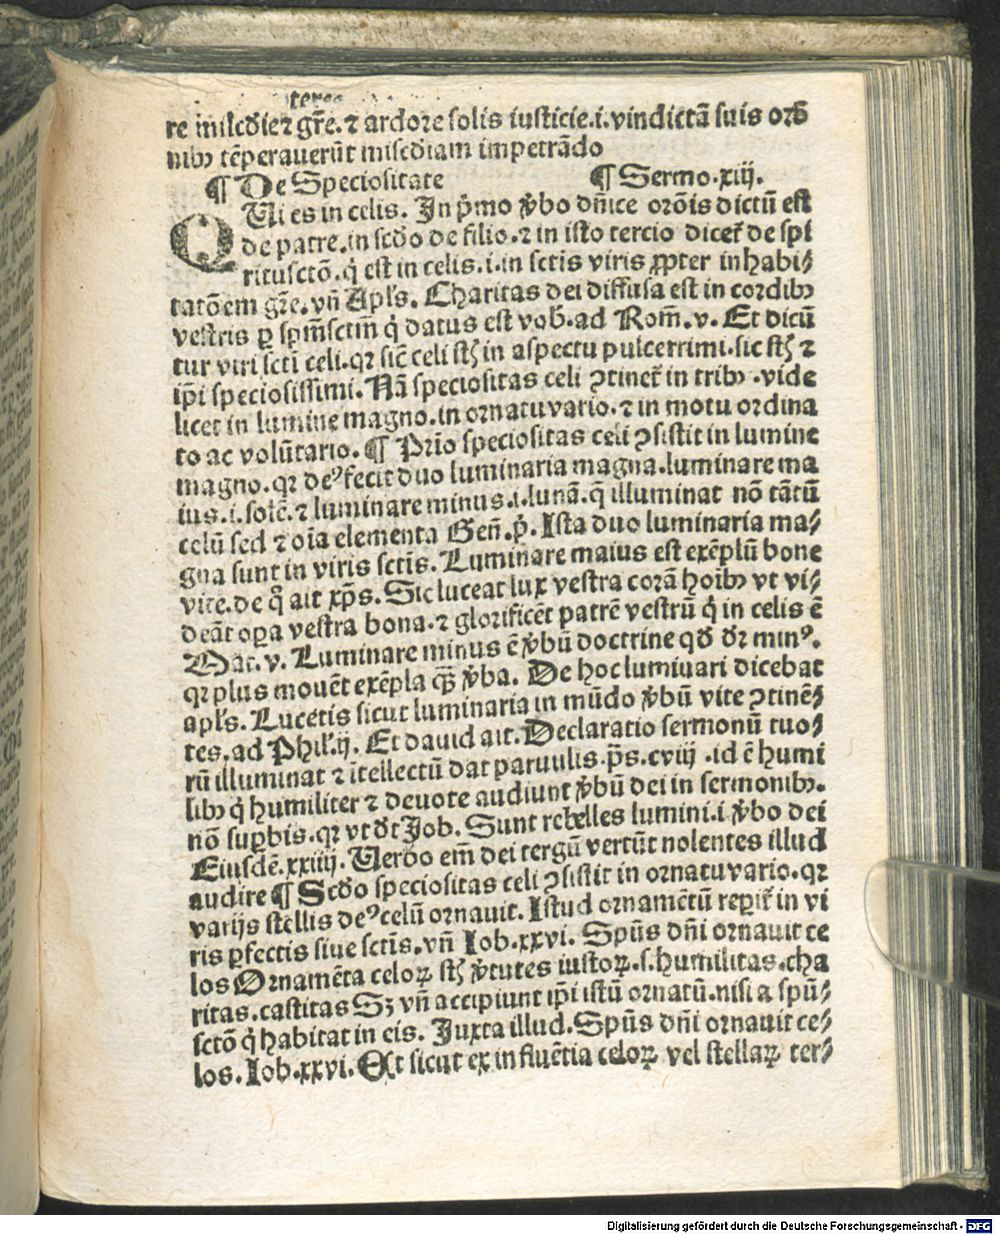 re mĩscd̕ie ⁊ gr̃e. ⁊ ardore solis iusticie .i. vindictã suis orō
nibꝰ tẽperauerũt miscd̕iam impetrãdo
¶ De Speciositate ¶ Sermo .xiij.
QUi es in celis. In p̲̕mo v̕bo dñice orõis dictũ est
de patre. in scd̕o de filio. ⁊ in isto tercio dicet̕ de spi
ritusctõ. q̕ est in celis .i. in sctĩs viris ꝓpter inhabi⸗
tatõem gr̃e. vñ Apl̕s. Charitas dei diffusa est in cordibꝰ
vestris ꝑ spm̃sctm̃ q̕ datus est vob̕. ad Rom̃. v. Et dicũ
tur viri sctĩ celi. qꝛ sic̃ celi st̕ in aspectu pulcerrimi. sic st̕ ⁊
ip̃i speciosissimi. Nã speciositas celi ꝯtinet̕ in tribꝰ . vide
licet in lumine magno. in ornatu vario. ⁊ in motu ordina
to ac volũtario. ¶ Prĩo speciositas celi ꝯsistit in lumine
magno. qꝛ deꝰ fecit duo luminaria magna. luminare ma
ius .i. solẽ. ⁊ luminare minus .i. lunã. q̃ illuminat nõ tãtũ
celũ sed ⁊ oĩa elementa Geñ. p̕. Ista duo luminaria ma⸗
gna sunt in viris sctĩs. Luminare maius est exẽplũ bone
vite. de q̊ ait xp̃s. Sic luceat lux vestra corã hoĩbꝰ vt vi⸗
deãt oꝑa vestra bona. ⁊ glorificẽt patrẽ vestrũ q̕ in celis ẽ
Mat. v. Luminare minus ẽ v̕bũ doctrine qđ dr̃ minꝰ.
qꝛ plus mouẽt exẽpla q̃ꝫ v̕ba. De hoc lumiuari dicebat
apl̕s. Lucetis sicut luminaria in mũdo v̕bũ vite ꝯtinẽ⸗
tes. ad Phil̕. ij. Et dauid ait. Declaratio sermonũ tuo⸗
rũ illuminat ⁊ ĩtellectũ dat paruulis. ps̃. cviij . id ẽ humi
libꝰ q̕ humiliter ⁊ deuote audiunt v̕bũ dei in sermonibꝰ.
nõ suꝑbis. qꝛ vt đt Job. Sunt rebelles lumini .i v̕bo dei
Eiusdẽ. xxiiij. Uerbo em̃ dei tergũ vertũt nolentes illud
audire ¶ Scd̕o speciositas celi ꝯsistit in ornatu vario. qꝛ
varijs stellis deꝰ celũ ornauit. Istud ornamẽtũ reꝑit̕ in vi
ris ꝑfectis siue sctĩs. vñ Iob. xxvi. Spũs dñi ornauit ce
los Ornamẽta celoꝝ st̕ v̕tutes iustoꝝ .s. humilitas. cha
ritas. castitas Sꝫ vñ accipiunt ip̃i istũ ornatũ. nisi a spũ⸗
sctõ q̕ habitat in eis. Juxta illud. Spũs dñi ornauit ce⸗
los. Iob. xxvi. Et sicut ex influẽtia celoꝝ vel stellaꝝ ter⸗
Digitalisierung gefördert durch die Deutsche Forschungsgemeinschaft - DFG